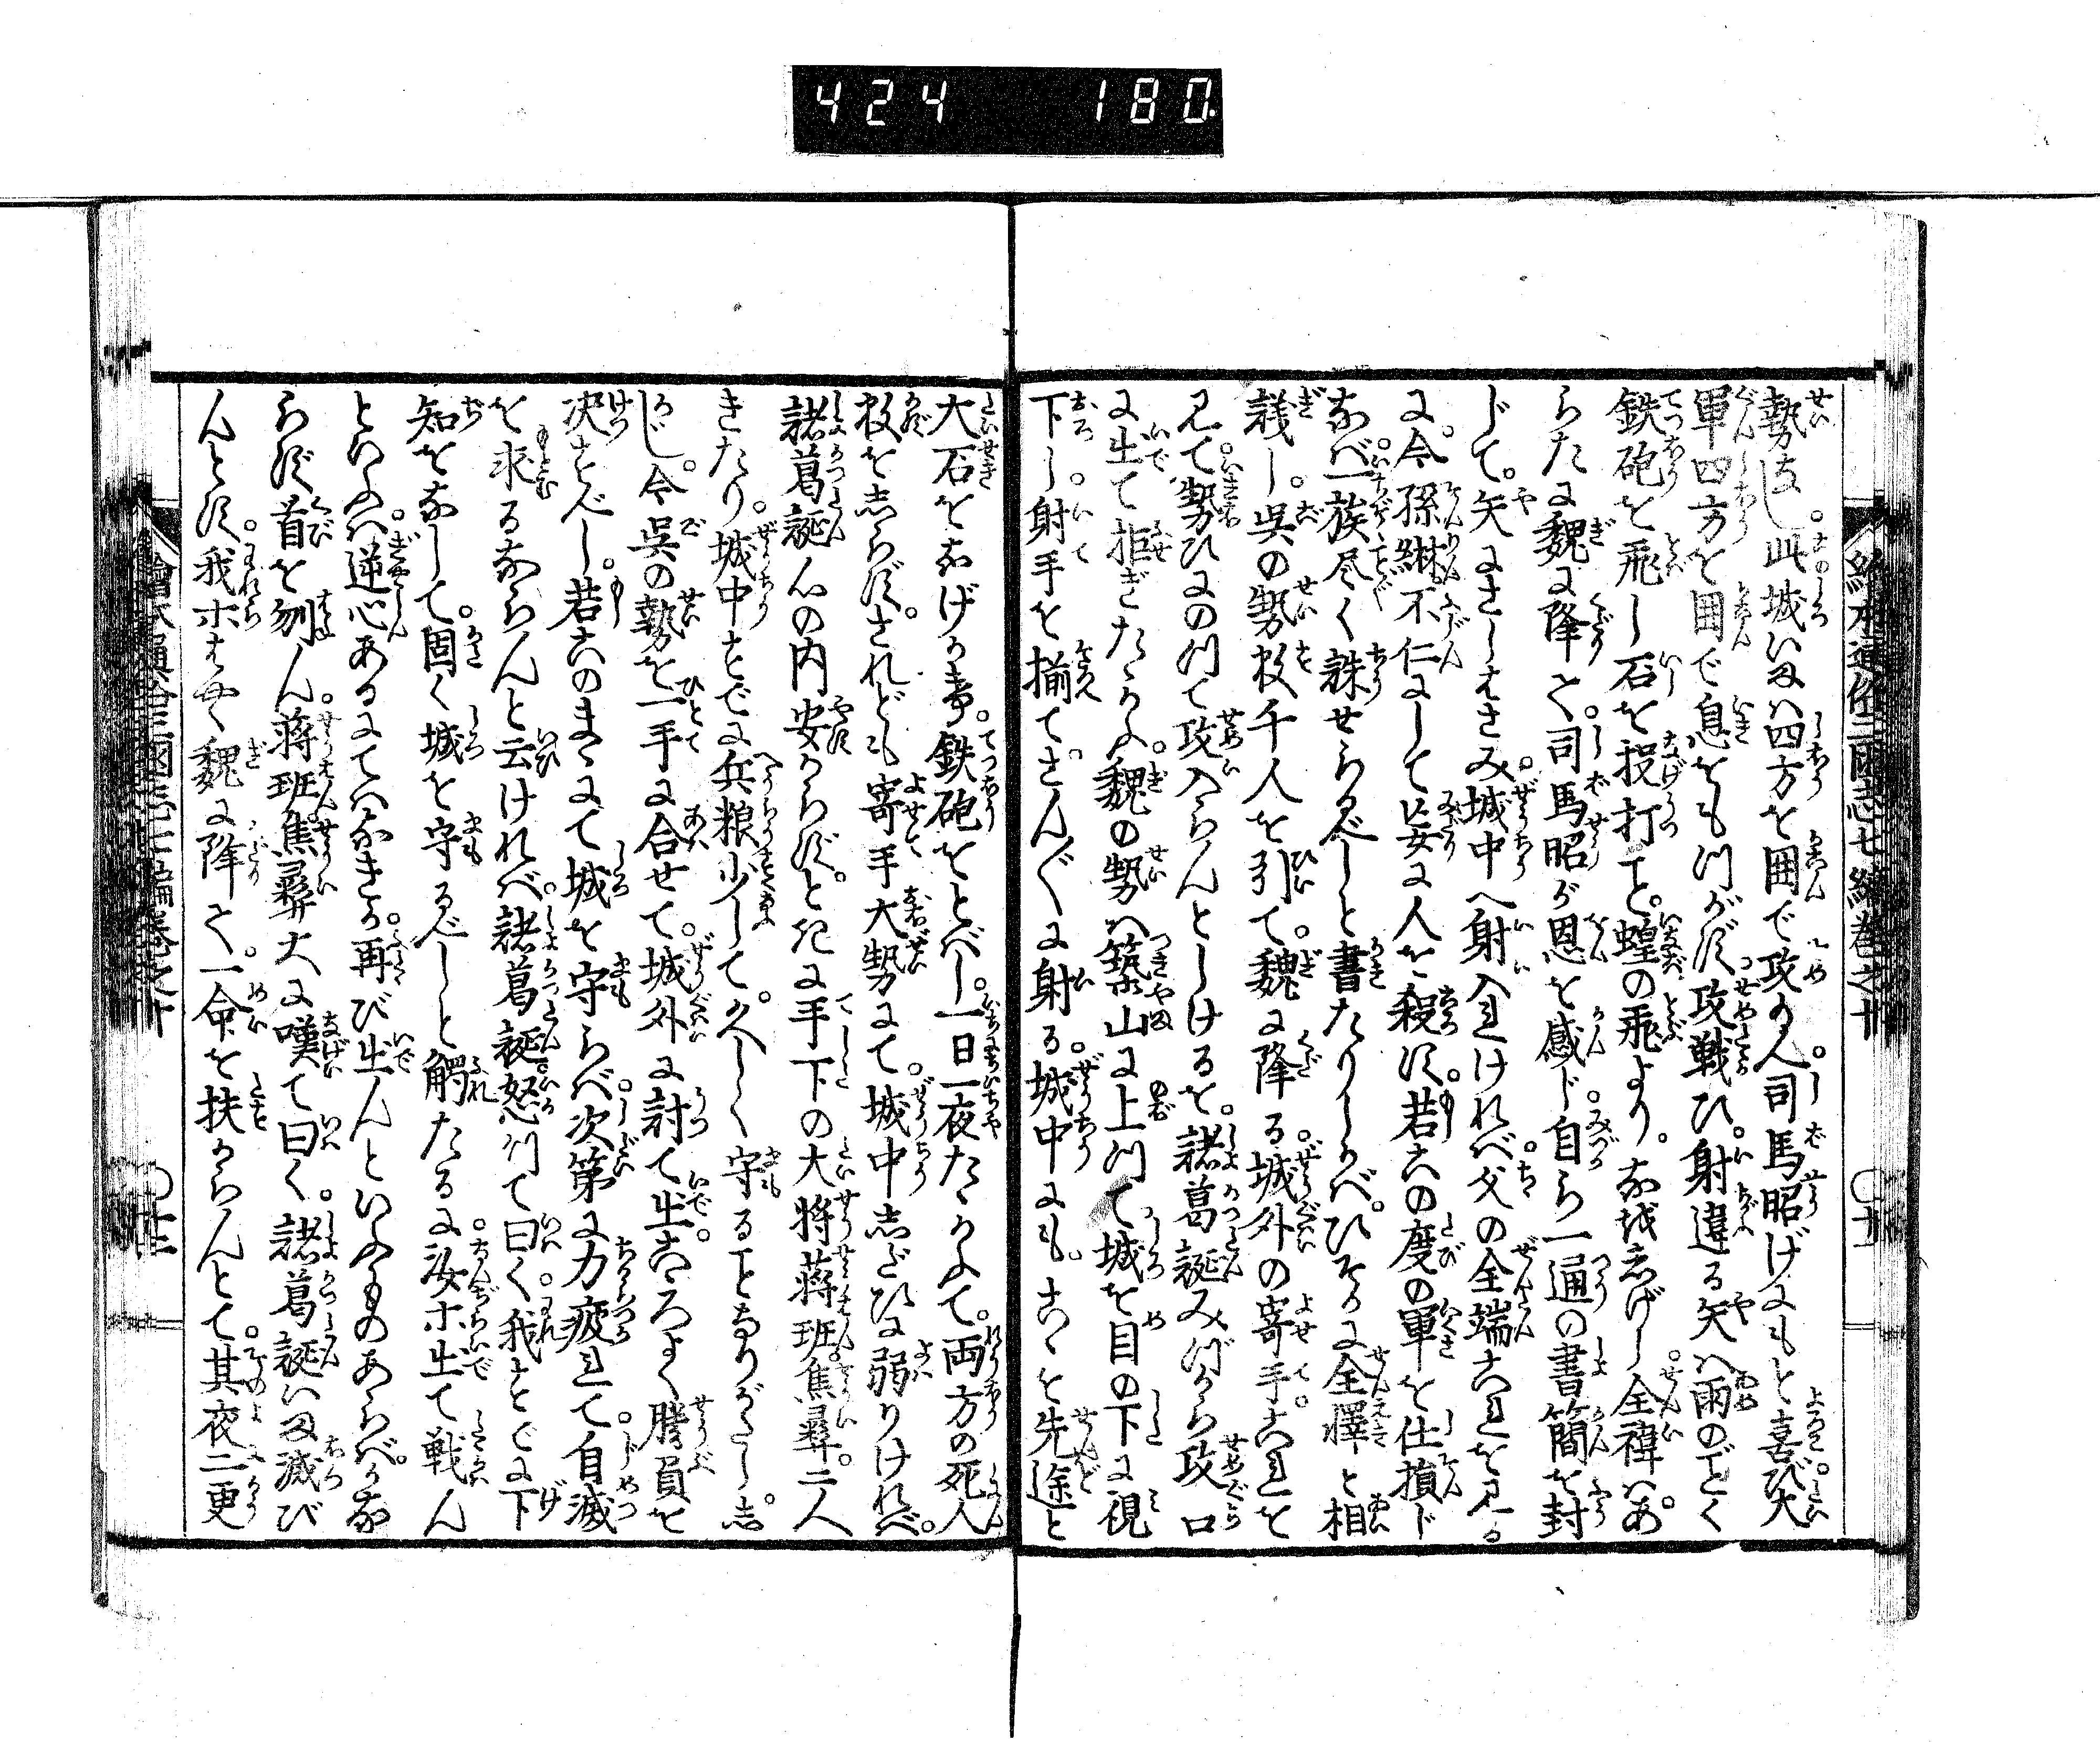 424 180
絵本通俗三国志七編巻之十
勢なし此城いまハ四方を囲で攻めん司馬昭げにもと喜び大
軍四方を囲で息をもつがず攻戦ひ射違る矢ハ雨のごとく
鉄砲を飛し石を投打こと蝗の飛より なほ志げし全禕ハあ
らたに魏に降て司馬昭が恩を感ド自ら一通の書簡を封
ドて矢にさしはさみ城中へ射入けれバ父の全端これを見る
に今孫綝不仁にして妄に人を殺す若この度の軍を仕損ド
なバ一族尽く誅せらるべしと書たりしかバひそかに全懌と相
議し呉の勢数千人を引て魏に降る城外の寄手これを
見て勢ひにのつて攻入らんとしけるを諸葛誕みづから攻口
に出て拒ぎたゝかふ魏の勢ハ築山に上つて城を目の下に視
下し射手を揃てさん〲に射る城中にもこゝを先途と
大石をなげかけ鉄砲をとバし一日一夜たゝかふて両方の死人
数を志らずされども寄手大勢にて城中志だひに弱りけれバ
諸葛誕心の内安からずとれに手下の大将蒋班焦彝二人
きたり城中すでに兵粮少して久しく守ることなりがたし志
かじ今呉の勢を一手に合せて城外に討て出こゝろよく勝負を
决すべし若このまゝにて城を守らバ次第に力疲れて自滅
を求るならんと云けれバ諸葛誕怒つて曰く我すでに下
知をなして固く城を守るべしと觸たるに汝ホ出て戦ん
といふハ逆心あるにてハなきか再び出んといふものあらバかな
らず首を刎ん蒋班焦彝大に嘆て曰く諸葛誕いま滅び
んとす我ホはやく魏に降て一命を扶からんとて其夜二更
繪本通俗三國志七編巻之十